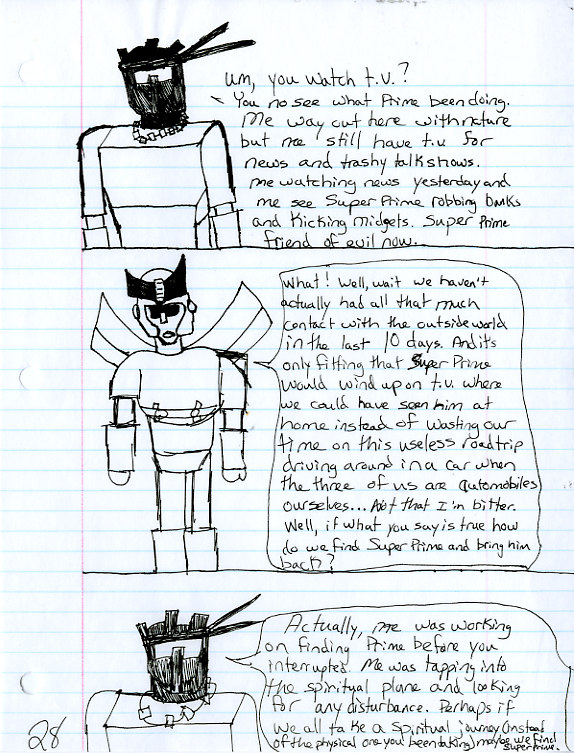 um, you watch t.v.?
You no see what Prime been doing.
Me way out here with nature
but me still have t.v for
news and trashy talkshows.
me watching news yesterday and
me see Super Prime robbing banks
and Kicking midgets. Super Prime
friend of evil now...
What! Well, wait we haven't
actually had all that much
contact with the outside world
in the last 10 days. And its
only fitting that Super Prime
would wind up on t.v. where
we could have seen him at
home instead of wasting our
time on this useless roadtrip
driving around in a car when
the three of us are automobiles
ourselves... Not that I'm bitter.
Well, if what you say is true how
do we find Super Prime and bring him
back?
Actually, me was working
on finding Prime before you
interrupted. Me was tapping into
the spirityal plane and looking
for any disturbance. Perhaps if
we all take a Spiritual journey (instead
of the physical one you been taking) maybe we find
Super Prime.
28